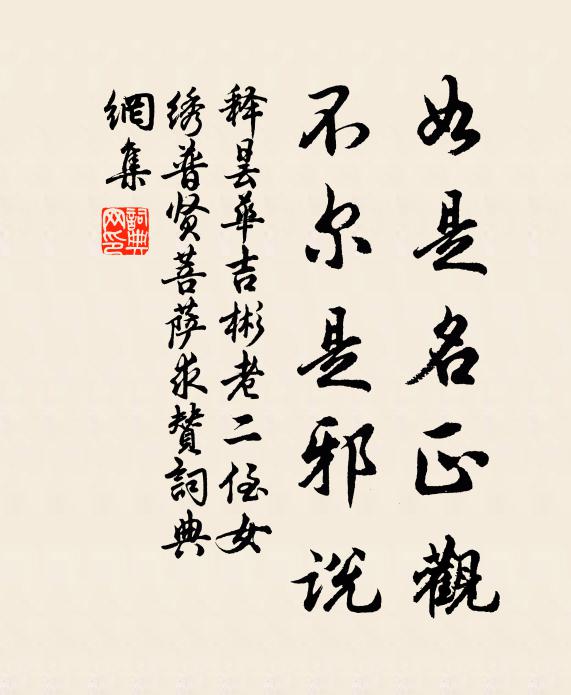 如是名正觀
不尔是邪说
释昙华吉彬老二侄女
绣普贤菩萨求赞詞典
網集
詞典网印